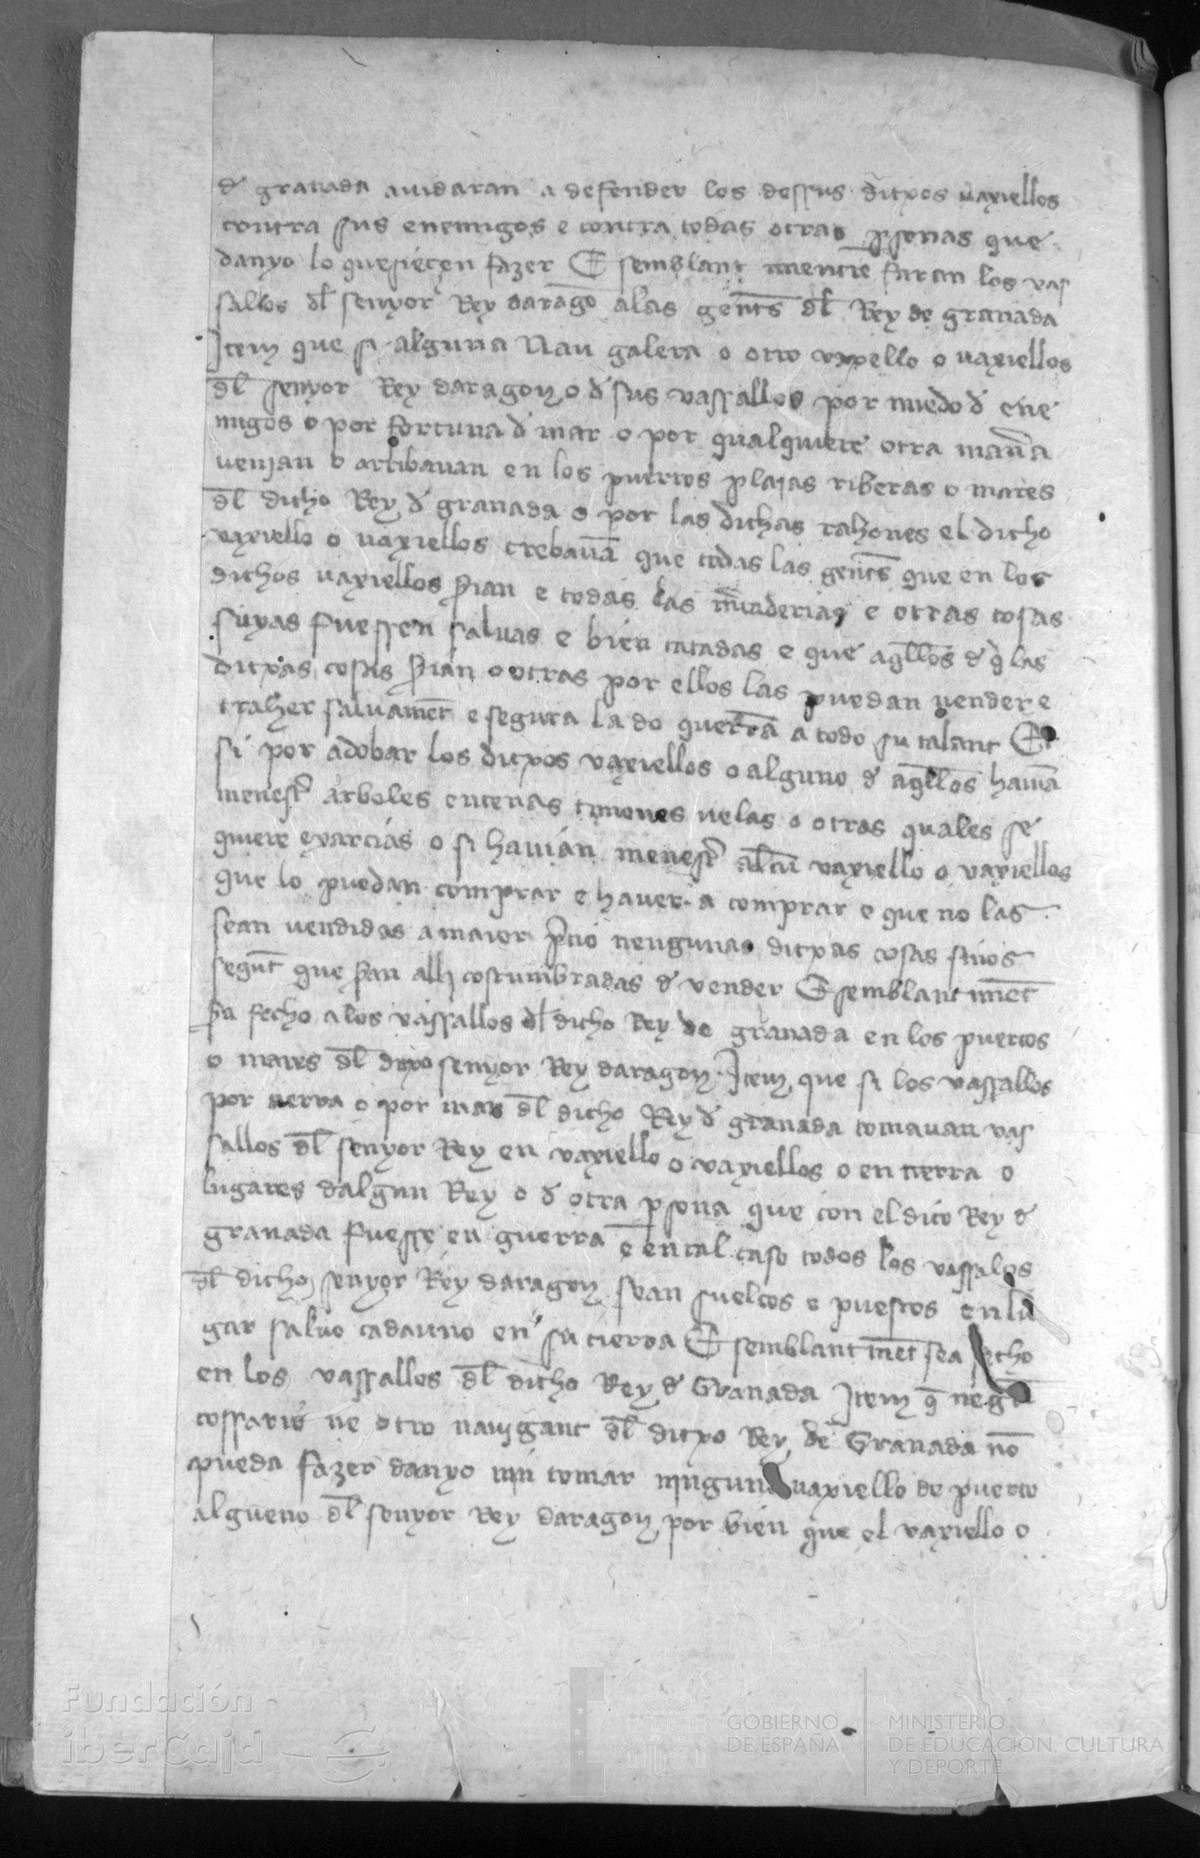 de granada aiudaran a defender los dessus ditxos vaxiellos
contra sus enemigos e contra todas otras psonas que
danyo lo quesiecen fazer E semblant mentre faran los vas
sallos dl senyor Rey darago alas gents dl Rey de granada
Item que si alguna Nau galera o otro vaxello o vaxiellos
dl senyor Rey daragon o d sus vassallos por miedo d ene
migos o por fortuna d mar o por qualquiere otra mana
venian o arribavan en los puertos plajas riberas o mares
dl dicho Rey d granada o por las dichas rahones el dicho
vaxiello o vaxiellos trebava que todas las gents que en los
dichos vaxiellos sian e todas las mcaderias e otras cosas
suyas fuessen salvas e bien catadas e que aqllos d qi las
ditxas cosas sian o otras por ellos las puedan vender e
traher salvament e segura la do querra a todo su talant Et
si por adobar los ditxos vaxiellos o alguno d aqllos havia
menest arboles entenas timones velas o otras quales se
quiere exarcias o si havian menest alcu vaxiello o vaxiellos
que lo puedan comprar e haver a comprar e que no las
sean vendidas a maior pcio nengunas ditxas cosas sinos
segunt que san alli costumbradas d vender E semblant ment
sia fecho alos vassallos dl dicho Rey de granada en los puertos
o mares dl dixo senyor Rey daragon Item que si los vassallos
por tierra o por mar dl dicho Rey d granada tomavan vas
sallos dl senyor Rey en vaxiello o vaxiellos o en tierra o
lugares dalgun Rey o d otra psona que con el dito Rey d
granada fuesse en guerra e en tal caso todos los vassalos
dl dicho senyor Rey daragon sean sueltos e puestos en lu
gar salvo cadauno en su tierra E semblant ment sea fecho
en los vassallos dl dicho Rey d Granada Item q negu
cossario ne otro navigant dl ditxo Rey de Granada no
pueda fazer danyo nin tomar ningun vaxiello de puerto
algueno dl senyor Rey daragon por bien que el vaxiello o
Fundación
iberCaja
GOBIERNO
DE ESPAÑA
MINISTERIO
DE EDUCACIÓN, CULTURA
Y DEPORTE